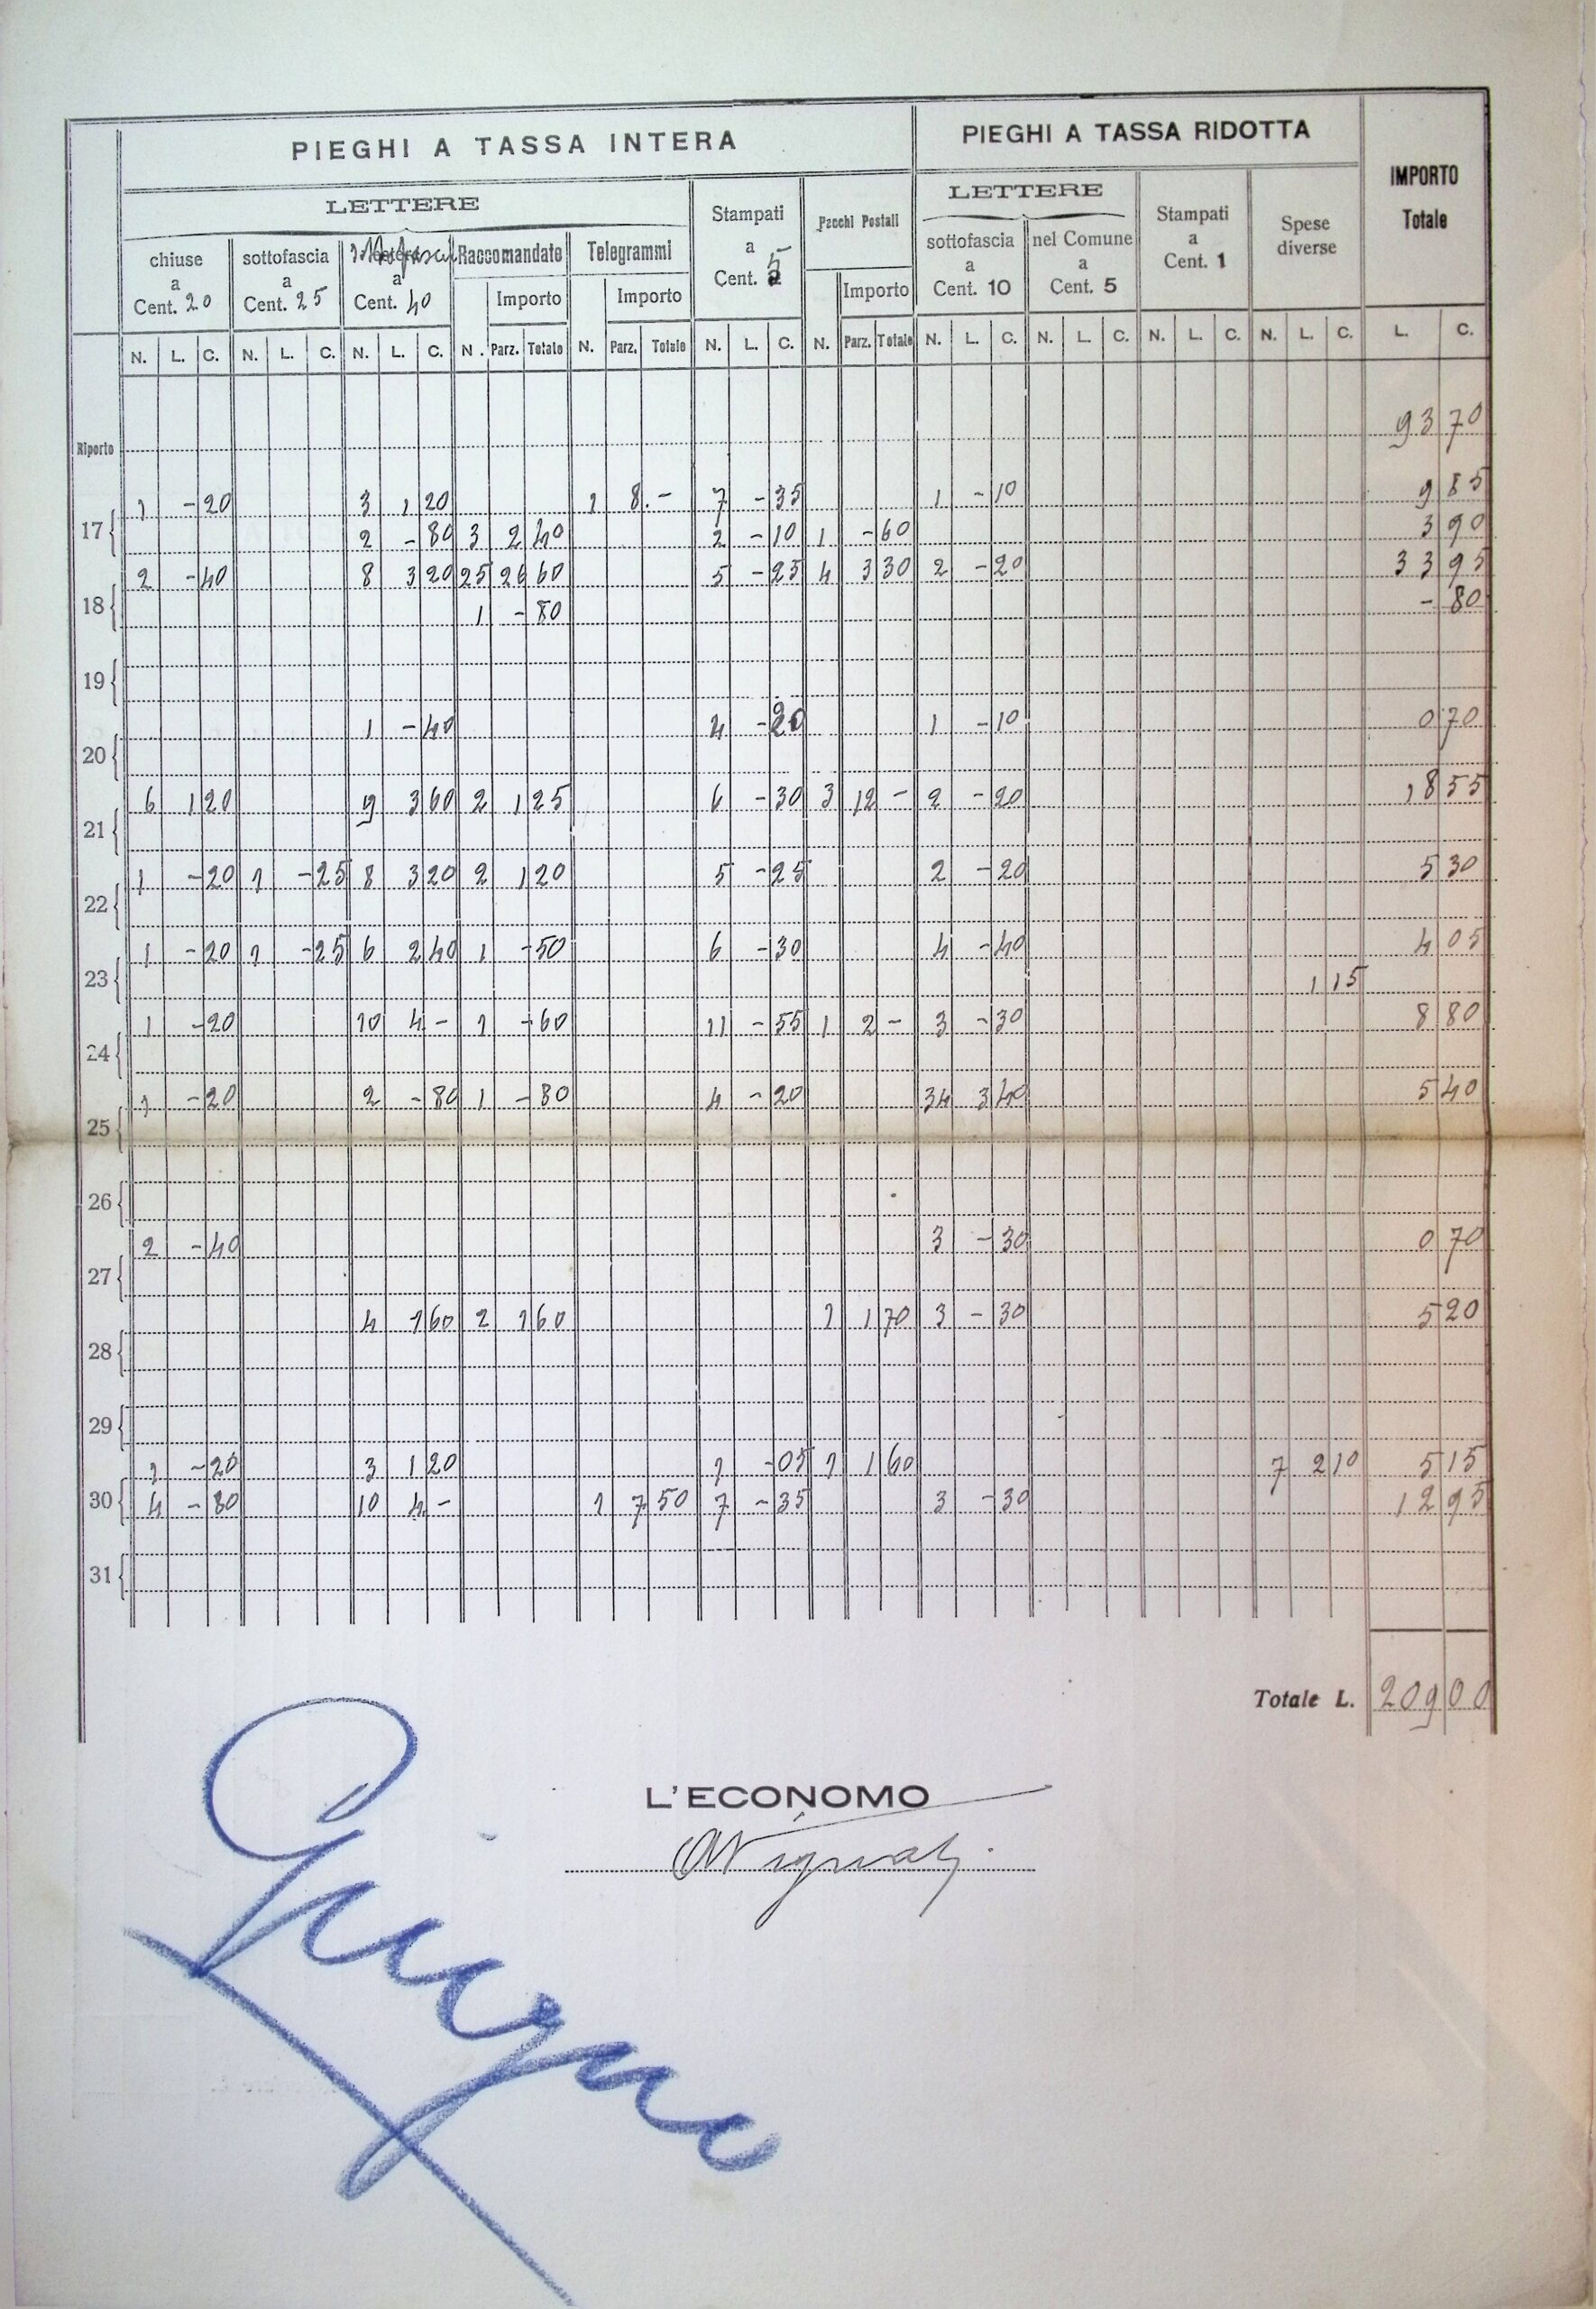 PIEGHI A TASSA INTERA PIEGHI A TASSA RIDOTTA IMPORTO Totale
LETTERE Stampati a Cent. 5 Pacchi Postali LETTERE Stampati a Cent. 1 Spese diverse
chiuse a Cent. 20 sottofascia a Cent. 25 a Cent. 40 Raccomandate Telegrammi sottofascia a Cent. 10 nel Comune a Cent. 5
Importo Importo Importo
N. L. C. N. L. C. N. L. C. N. Parz. Totale N. Parz. Totale N. L. C. N. Parz. Totale N. L. C. N. L. C. N. L. C. N. L. C. L. C.
Riporto 93 70
1 - 20 3 1 20 1 8. - 7 - 35 1 - 10 9 85
17 2 - 80 3 2 40 2 - 10 1 - 60 3 90
2 - 40 8 3 20 25 26 60 5 - 25 4 3 30 2 - 20 33 95
18 1 - 80 - 80
19
1 - 40 4 - 20 1 - 10 0 70
20
6 1 20 9 3 60 2 1 25 6 - 30 3 12 - 2 - 20 18 55
21
1 - 20 1 - 25 8 3 20 2 1 20 5 - 25 2 - 20 5 30
22
1 - 20 1 - 25 6 2 40 1 - 50 6 - 30 4 - 40 4 05
23 1 15
1 - 20 10 4 - 1 - 60 11 - 55 1 2 - 3 - 30 8 80
24
1 - 20 2 - 80 1 - 80 4 - 20 34 3 40 5 40
25
26
2 - 40 3 - 30 0 70
27
4 1 60 2 1 60 1 1 70 3 - 30 5 20
28
29
1 - 20 3 1 20 1 - 05 1 1 60 7 2 10 5 15
30 4 - 80 10 4 - 1 7 50 7 - 35 3 - 30 12 95
31
Totale L. 209 00
L'ECONOMO
Giugno